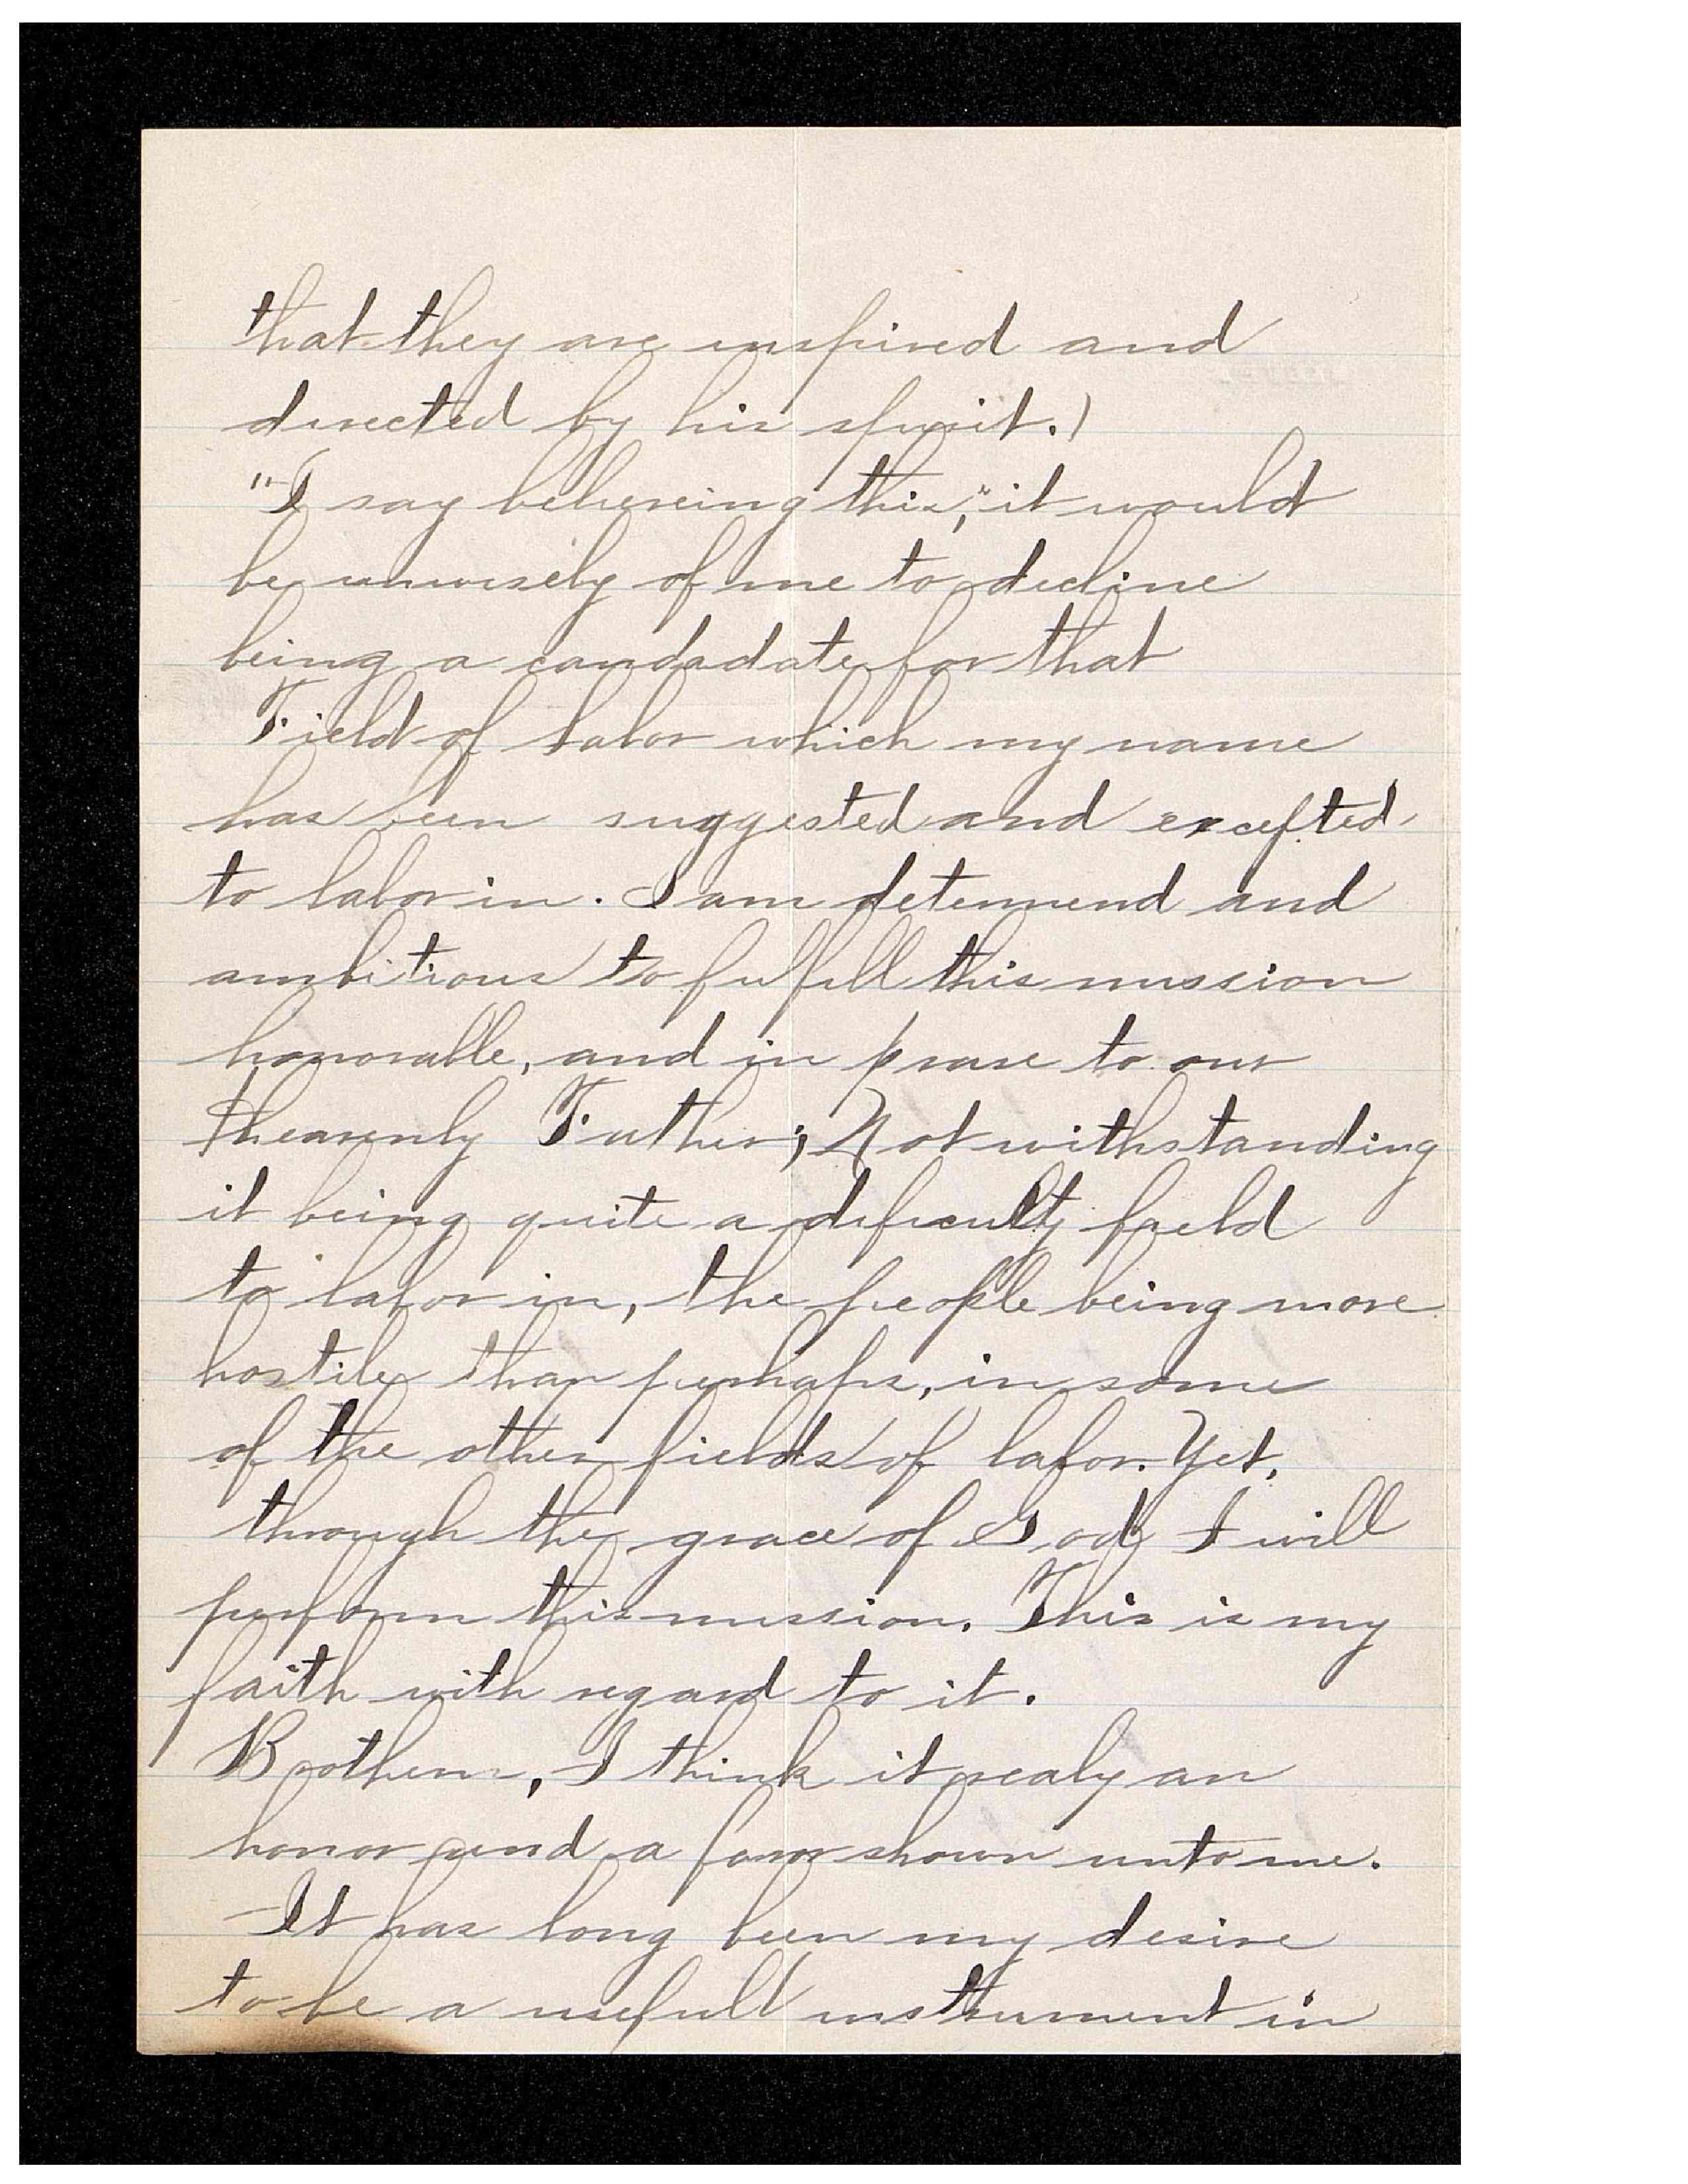 that they are inspired and
directed by his spirit.)
"I say beliereing this," it would
be unwisely of me to decline
being a candadate for that
Field of Labor which my name
has been suggested and excepted
to labor in. I am determend and
ambitious to fulfill this mission
honorable, and in prase to our
Heavenly Father; Notwithstanding
it being quite a dificulty field
to labor in, the people being more
hostile than perhaps, in some
of the other fields of labor. Yet,
through the grace of God I will
perform this mission. This is my
faith with regard to it.
Brothern, I think it realy an
honor and a favor shown unto me.
It has long been my desire
to be a usefull instrument in